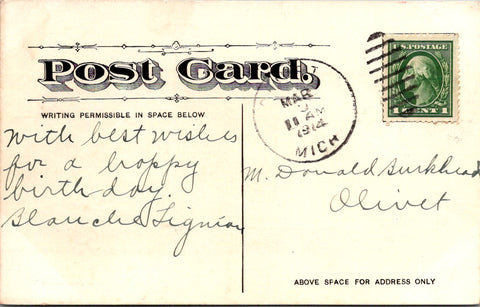 Post Card.
WRITING PERMISSIBLE IN SPACE BELOW
MAR
11 AM
1914
MICH
U.S. POSTAGE
1 CENT 1
With best wishes
for a happy
birthday.
Blanche
M. Donald Burkhead
Olivet
ABOVE SPACE FOR ADDRESS ONLY